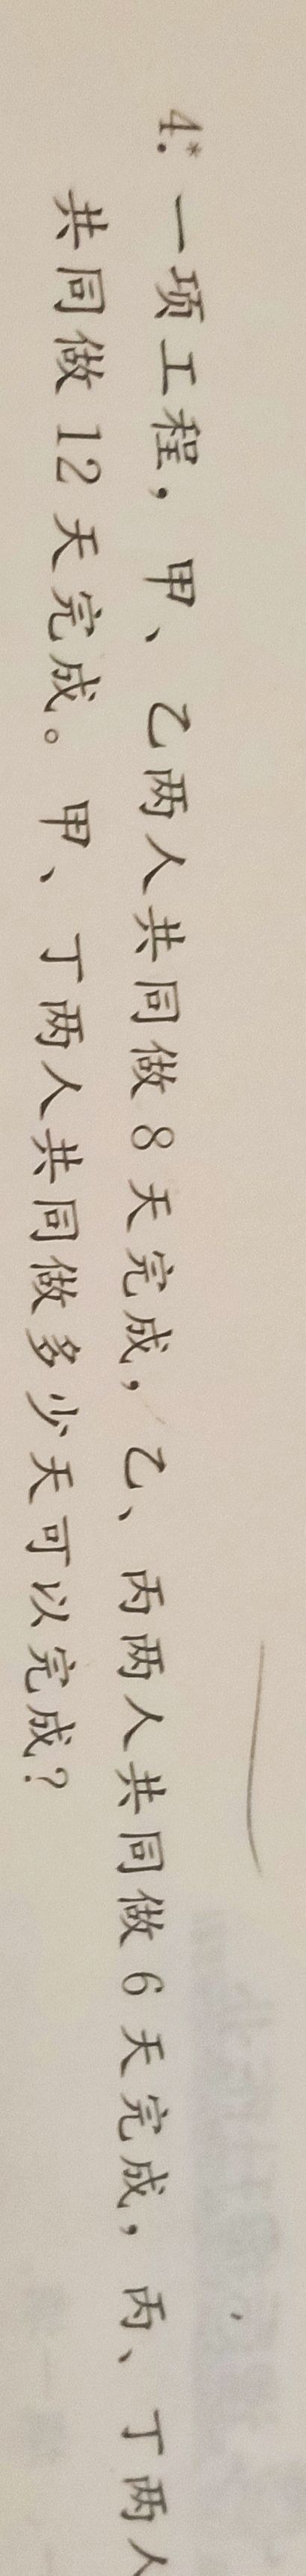 4.* 一项工程，甲、乙两人共同做8天完成，乙、丙两人共同做6天完成，丙、丁两人
共同做12天完成。甲、丁两人共同做多少天可以完成？